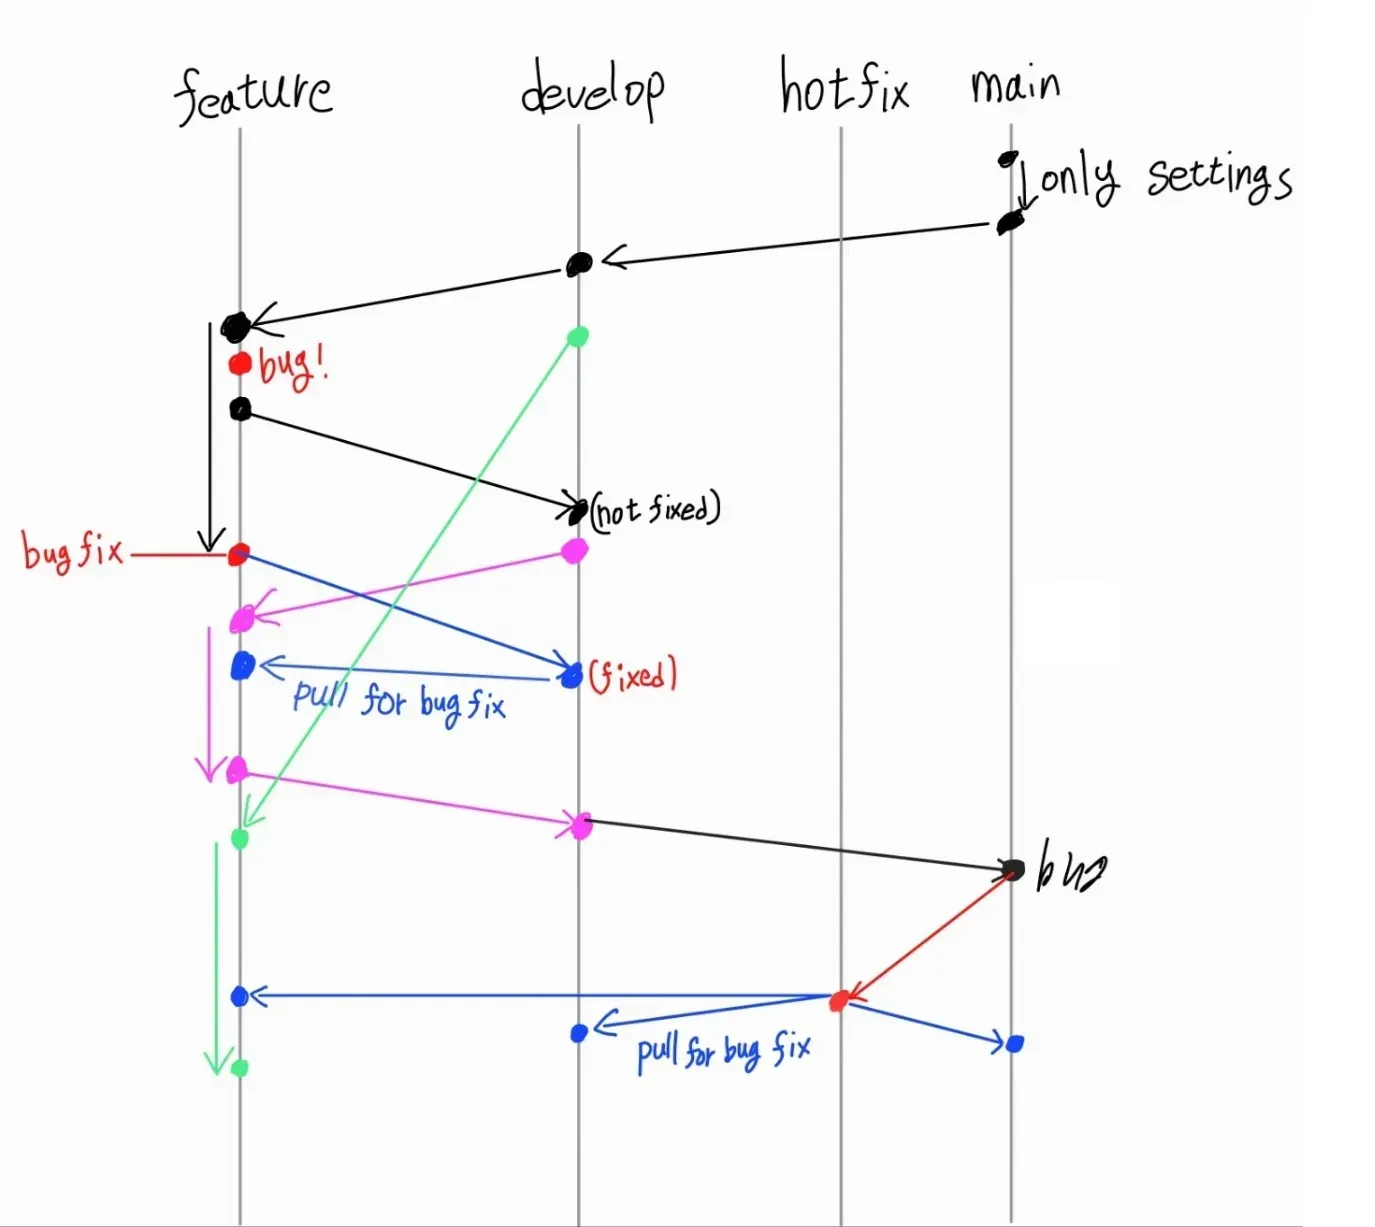 feature
develop
hotfix
main
only settings
bug!
(not fixed)
bug fix
(fixed)
pull for bug fix
bug
pull for bug fix